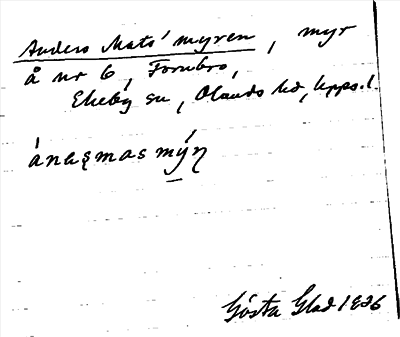 Anders Mats' myren, myr
å nr 6, Fornbro,
Ekeby sn, Olands hd, Upps. l.
ánasmas mýn
Gösta Glad 1936